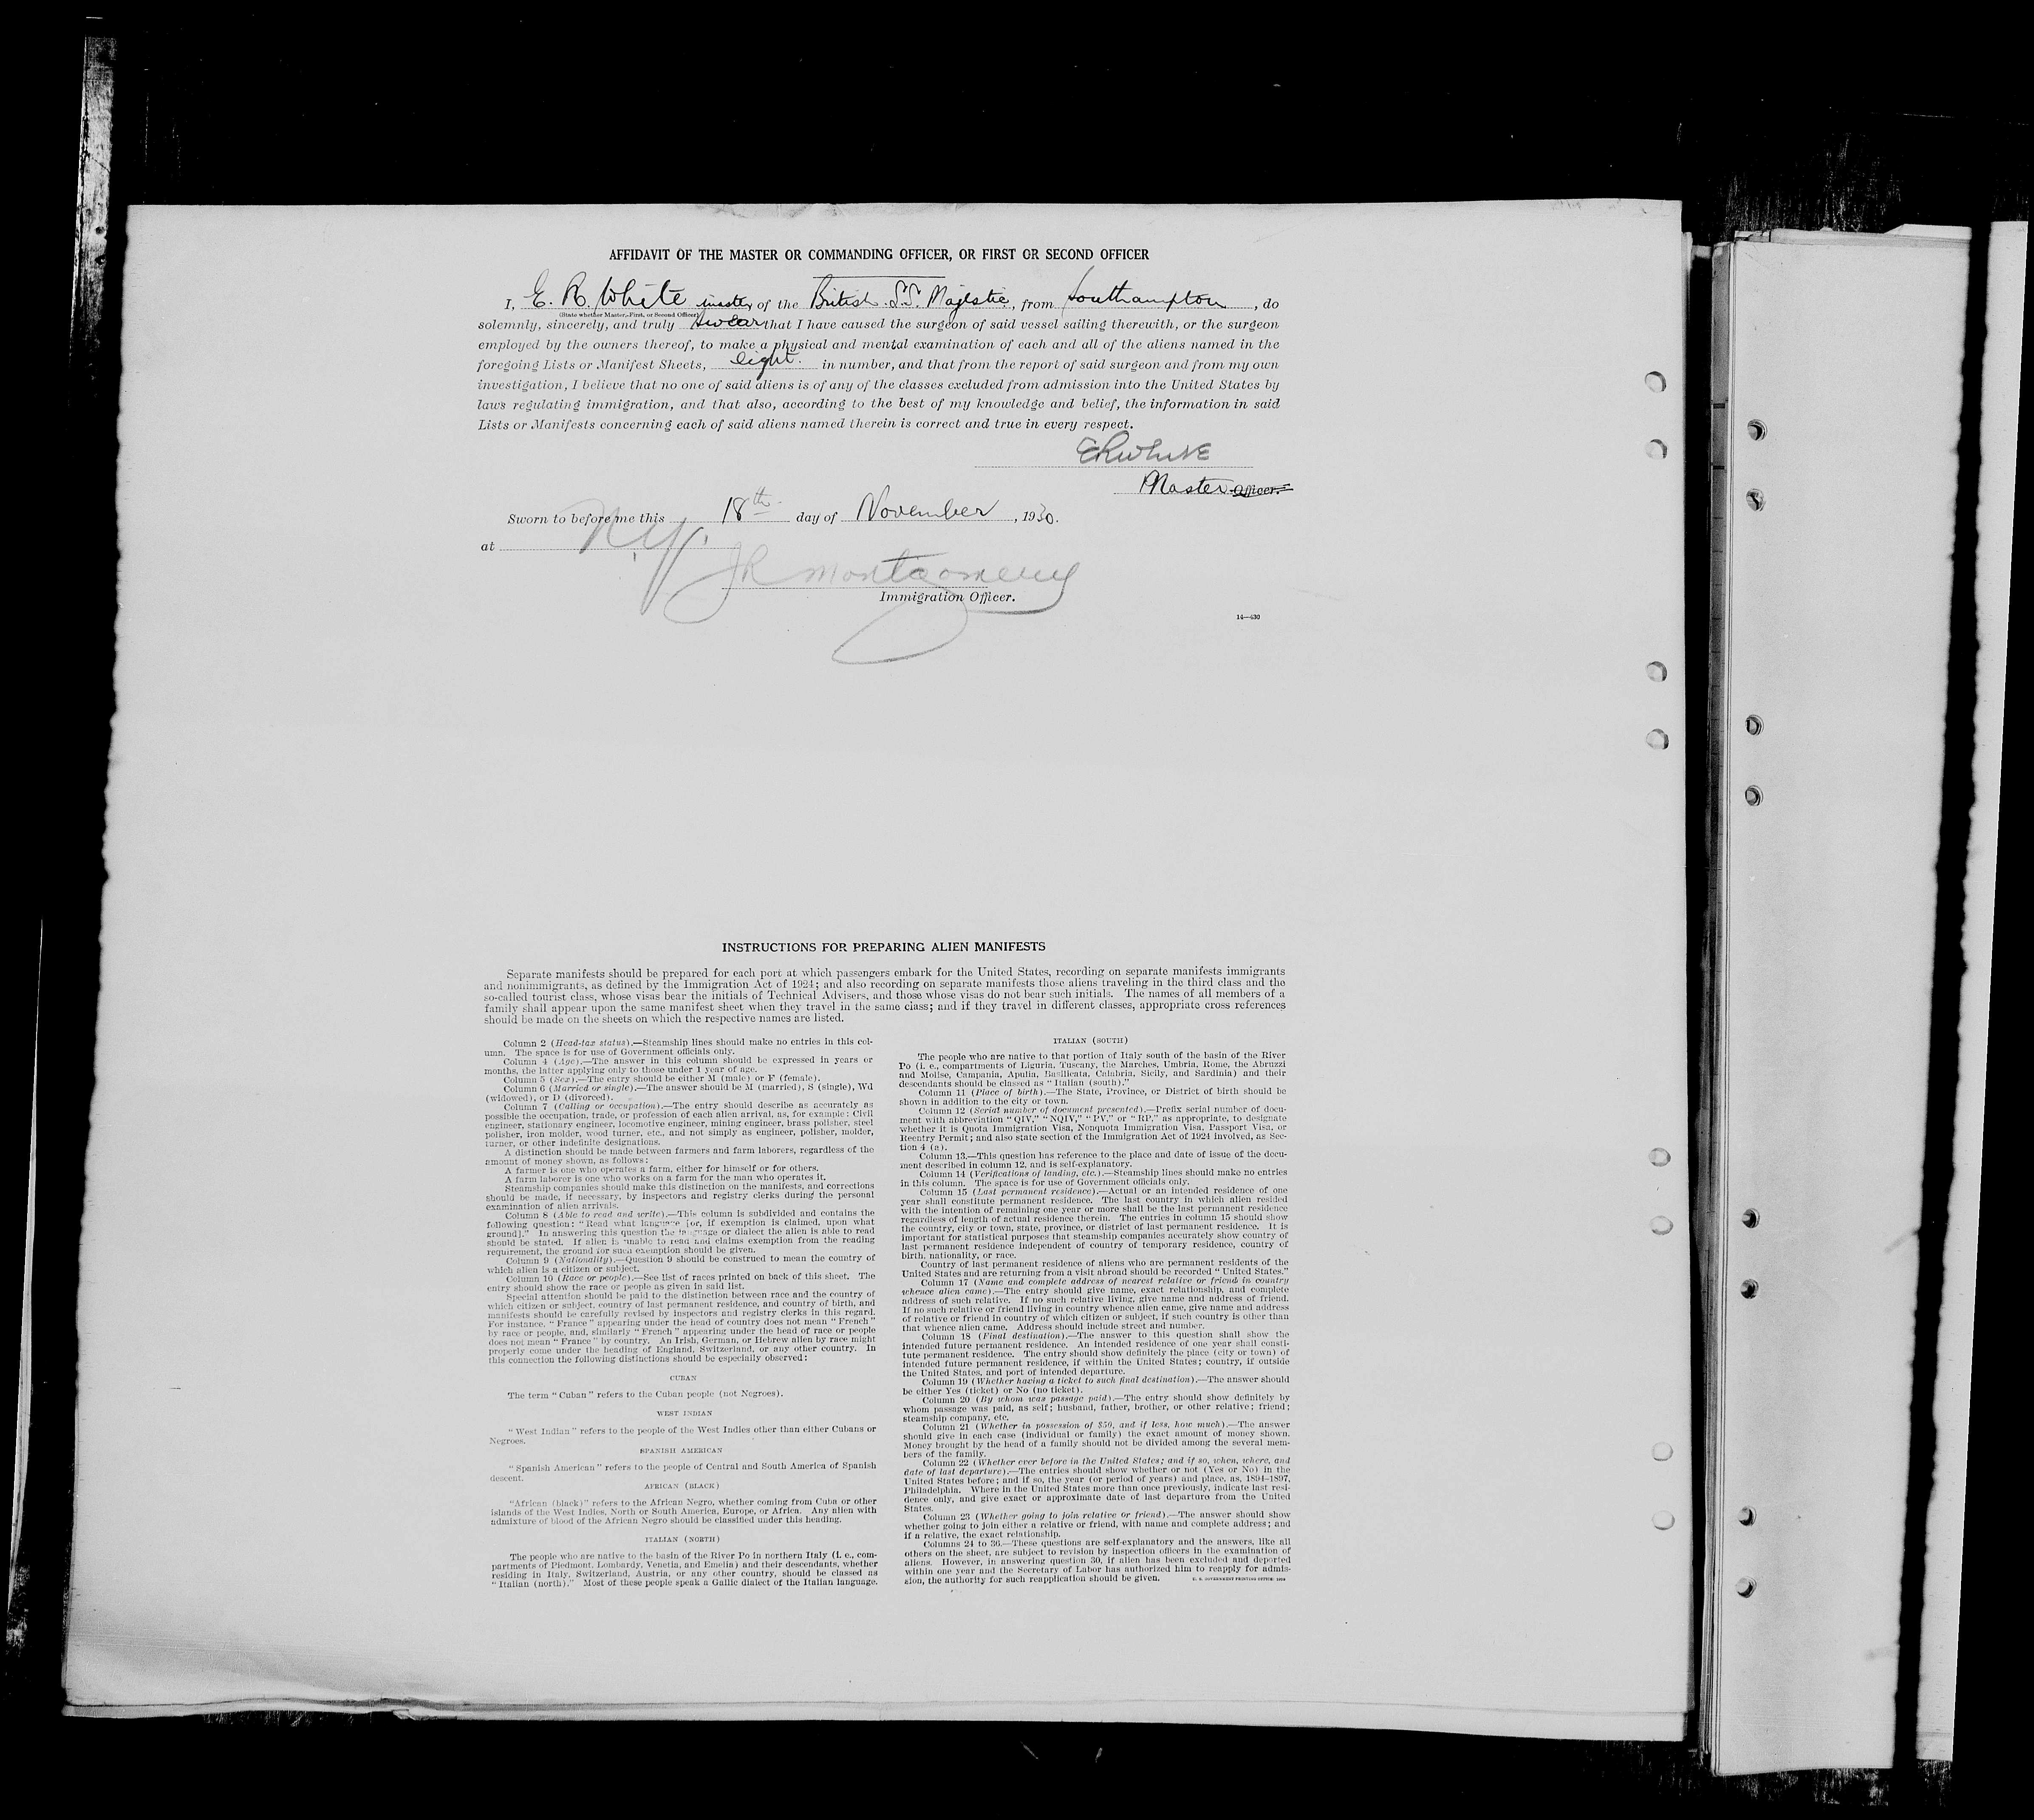 AFFIDAVIT OF THE MASTER OR COMMANDING OFFICER, OR FIRST OR SECOND OFFICER
I, E. R. White master of the British S.S. Majestic, from Southampton, do
(State whether Master, First, or Second Officer)
solemnly, sincerely, and truly swear that I have caused the surgeon of said vessel sailing therewith, or the surgeon
employed by the owners thereof, to make a physical and mental examination of each and all of the aliens named in the
foregoing Lists or Manifest Sheets, eight. in number, and that from the report of said surgeon and from my own
investigation, I believe that no one of said aliens is of any of the classes excluded from admission into the United States by
laws regulating immigration, and that also, according to the best of my knowledge and belief, the information in said
Lists or Manifests concerning each of said aliens named therein is correct and true in every respect.
ERWhite
Master Officer.
Sworn to before me this 18th day of November, 1930.
at N.Y.
JR Montgomery
Immigration Officer.
14—430
INSTRUCTIONS FOR PREPARING ALIEN MANIFESTS
Separate manifests should be prepared for each port at which passengers embark for the United States, recording on separate manifests immigrants
and nonimmigrants, as defined by the Immigration Act of 1924; and also recording on separate manifests those aliens traveling in the third class and the
so-called tourist class, whose visas bear the initials of Technical Advisers, and those whose visas do not bear such initials. The names of all members of a
family shall appear upon the same manifest sheet when they travel in the same class; and if they travel in different classes, appropriate cross references
should be made on the sheets on which the respective names are listed.
Column 2 (Head-tax status).—Steamship lines should make no entries in this col-
umn. The space is for use of Government officials only.
Column 4 (Age).—The answer in this column should be expressed in years or
months, the latter applying only to those under 1 year of age.
Column 5 (Sex).—The entry should be either M (male) or F (female).
Column 6 (Married or single).—The answer should be M (married), S (single), Wd
(widowed), or D (divorced).
Column 7 (Calling or occupation).—The entry should describe as accurately as
possible the occupation, trade, or profession of each alien arrival, as, for example: Civil
engineer, stationary engineer, locomotive engineer, mining engineer, brass polisher, steel
polisher, iron molder, wood turner, etc., and not simply as engineer, polisher, molder,
turner, or other indefinite designations.
A distinction should be made between farmers and farm laborers, regardless of the
amount of money shown, as follows:
A farmer is one who operates a farm, either for himself or for others.
A farm laborer is one who works on a farm for the man who operates it.
Steamship companies should make this distinction on the manifests, and corrections
should be made, if necessary, by inspectors and registry clerks during the personal
examination of alien arrivals.
Column 8 (Able to read and write).—This column is subdivided and contains the
following question: "Read what language [or, if exemption is claimed, upon what
ground]." In answering this question the language or dialect the alien is able to read
should be stated. If alien is unable to read and claims exemption from the reading
requirement, the ground for such exemption should be given.
Column 9 (Nationality).—Question 9 should be construed to mean the country of
which alien is a citizen or subject.
Column 10 (Race or people).—See list of races printed on back of this sheet. The
entry should show the race or people as given in said list.
Special attention should be paid to the distinction between race and the country of
which citizen or subject, country of last permanent residence, and country of birth, and
manifests should be carefully revised by inspectors and registry clerks in this regard.
For instance, "France" appearing under the head of country does not mean "French"
by race or people, and, similarly "French" appearing under the head of race or people
does not mean "France" by country. An Irish, German, or Hebrew alien by race might
properly come under the heading of England, Switzerland, or any other country. In
this connection the following distinctions should be especially observed:
CUBAN
The term "Cuban" refers to the Cuban people (not Negroes).
WEST INDIAN
"West Indian" refers to the people of the West Indies other than either Cubans or
Negroes.
SPANISH AMERICAN
"Spanish American" refers to the people of Central and South America of Spanish
descent.
AFRICAN (BLACK)
"African (black)" refers to the African Negro, whether coming from Cuba or other
islands of the West Indies, North or South America, Europe, or Africa. Any alien with
admixture of blood of the African Negro should be classified under this heading.
ITALIAN (NORTH)
The people who are native to the basin of the River Po in northern Italy (i. e., com-
partments of Piedmont, Lombardy, Venetia, and Emelia) and their descendants, whether
residing in Italy, Switzerland, Austria, or any other country, should be classed as
"Italian (north)." Most of these people speak a Gallic dialect of the Italian language.
ITALIAN (SOUTH)
The people who are native to that portion of Italy south of the basin of the River
Po (i. e., compartments of Liguria, Tuscany, the Marches, Umbria, Rome, the Abruzzi
and Molise, Campania, Apulia, Basilicata, Calabria, Sicily, and Sardinia) and their
descendants should be classed as "Italian (south)."
Column 11 (Place of birth).—The State, Province, or District of birth should be
shown in addition to the city or town.
Column 12 (Serial number of document presented).—Prefix serial number of docu-
ment with abbreviation "QIV," "NQIV," "PV," or "RP," as appropriate, to designate
whether it is Quota Immigration Visa, Nonquota Immigration Visa, Passport Visa, or
Reentry Permit; and also state section of the Immigration Act of 1924 involved, as Sec-
tion 4 (a).
Column 13.—This question has reference to the place and date of issue of the docu-
ment described in column 12, and is self-explanatory.
Column 14 (Verifications of landing, etc.).—Steamship lines should make no entries
in this column. The space is for use of Government officials only.
Column 15 (Last permanent residence).—Actual or an intended residence of one
year shall constitute permanent residence. The last country in which alien resided
with the intention of remaining one year or more shall be the last permanent residence
regardless of length of actual residence therein. The entries in column 15 should show
the country, city or town, state, province, or district of last permanent residence. It is
important for statistical purposes that steamship companies accurately show country of
last permanent residence independent of country of temporary residence, country of
birth, nationality, or race.
Country of last permanent residence of aliens who are permanent residents of the
United States and are returning from a visit abroad should be recorded "United States."
Column 17 (Name and complete address of nearest relative or friend in country
whence alien came).—The entry should give name, exact relationship, and complete
address of such relative. If no such relative living, give name and address of friend.
If no such relative or friend living in country whence alien came, give name and address
of relative or friend in country of which citizen or subject, if such country is other than
that whence alien came. Address should include street and number.
Column 18 (Final destination).—The answer to this question shall show the
intended future permanent residence. An intended residence of one year shall consti-
tute permanent residence. The entry should show definitely the place (city or town) of
intended future permanent residence, if within the United States; country, if outside
the United States, and port of intended departure.
Column 19 (Whether having a ticket to such final destination).—The answer should
be either Yes (ticket) or No (no ticket).
Column 20 (By whom was passage paid).—The entry should show definitely by
whom passage was paid, as self; husband, father, brother, or other relative; friend;
steamship company, etc.
Column 21 (Whether in possession of $50, and if less, how much).—The answer
should give in each case (individual or family) the exact amount of money shown.
Money brought by the head of a family should not be divided among the several mem-
bers of the family.
Column 22 (Whether ever before in the United States; and if so, when, where, and
date of last departure).—The entries should show whether or not (Yes or No) in the
United States before; and if so, the year (or period of years) and place, as, 1894-1897,
Philadelphia. Where in the United States more than once previously, indicate last resi-
dence only, and give exact or approximate date of last departure from the United
States.
Column 23 (Whether going to join relative or friend).—The answer should show
whether going to join either a relative or friend, with name and complete address; and
if a relative, the exact relationship.
Columns 24 to 36.—These questions are self-explanatory and the answers, like all
others on the sheet, are subject to revision by inspection officers in the examination of
aliens. However, in answering question 30, if alien has been excluded and deported
within one year and the Secretary of Labor has authorized him to reapply for admis-
sion, the authority for such reapplication should be given.